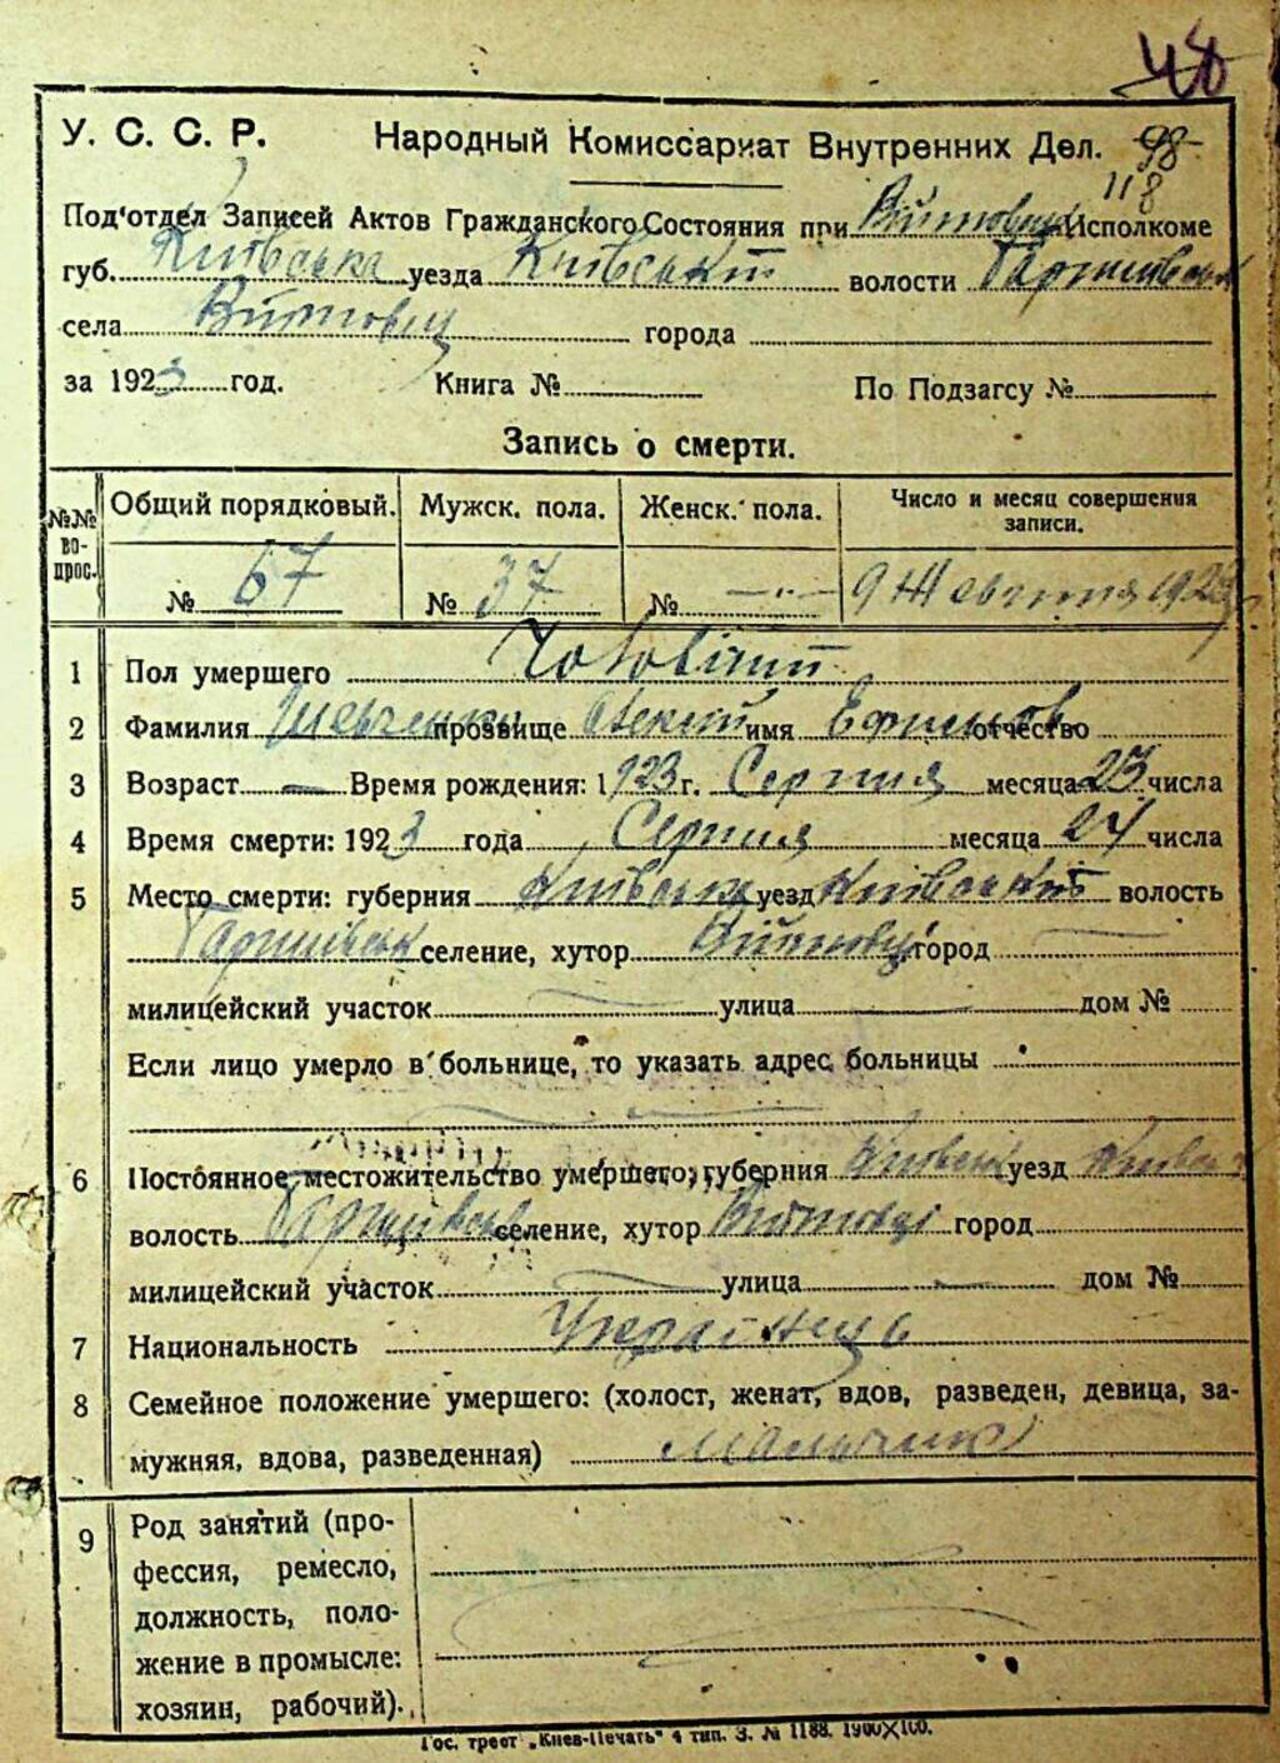 48
У. С. С. Р. Народный Комиссариат Внутренних Дел. 98
118
Под'отдел Записей Актов Гражданского Состояния при Исполкоме
губ. Київська уезда Київський волости
села города
за 1923 год. Книга № По Подзагсу №
Запись о смерти.
№№ во- прос. Общий порядковый. Мужск. пола. Женск. пола. Число и месяц совершения записи.
№ 67 № 37 № —"—
1 Пол умершего Чоловічий
2 Фамилия Шевченко прозвище имя отчество
3 Возраст — Время рождения: 1923 г. Серпня месяца 23 числа
4 Время смерти: 1923 года Серпня месяца 24 числа
5 Место смерти: губерния Київська уезд Київський волость
селение, хутор город —
милицейский участок — улица — дом №
Если лицо умерло в больнице, то указать адрес больницы
6 Постоянное местожительство умершего; губерния уезд
волость селение, хутор город
милицейский участок — улица — дом №
7 Национальность Українець
8 Семейное положение умершего: (холост, женат, вдов, разведен, девица, за-
мужняя, вдова, разведенная) Мальчик
9 Род занятий (про-
фессия, ремесло,
должность, поло-
жение в промысле:
хозяин, рабочий).
Гос. трест „Киев-Печать" 4 тип. З. № 1188. 1900×100.